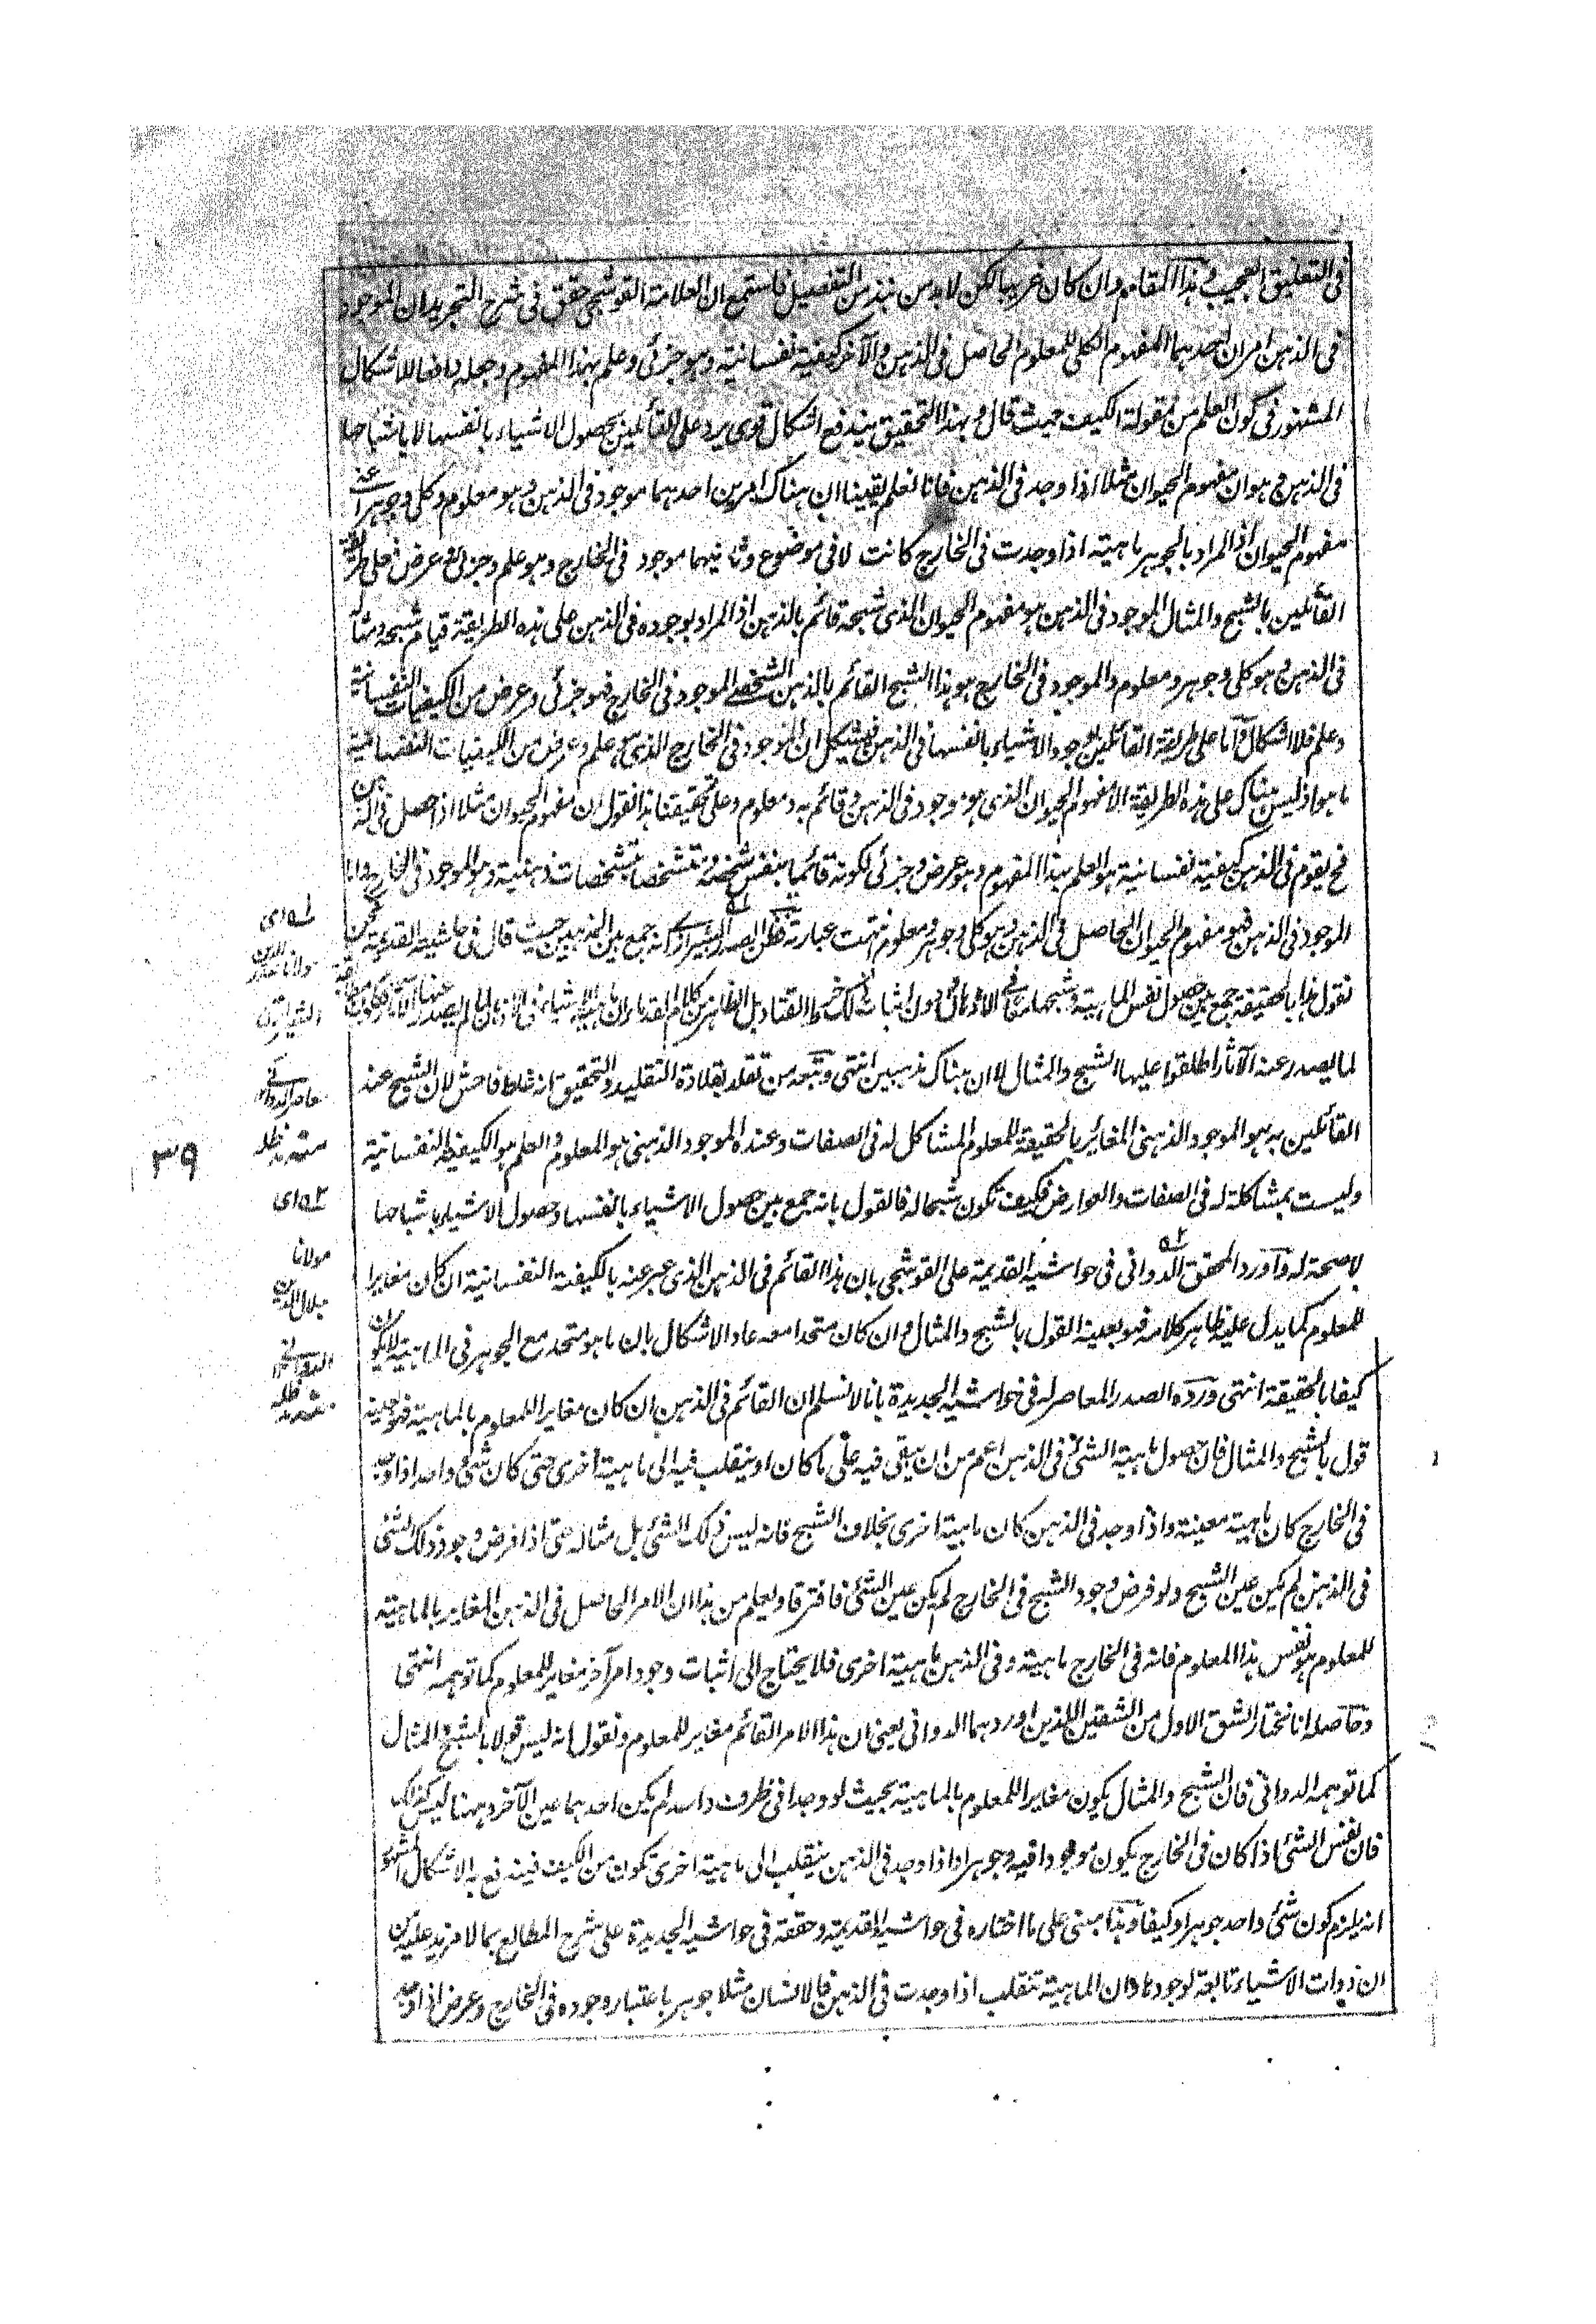 فى التعليق العجيب وهذا المقام وان كان غريبا لكن لابد من نبذ من التفصيل فاستمع ان العلامة القوشجى حقق فى شرح التجريد ان الموجود
فى الذهن امران احدهما المفهوم الكلى للمعلوم الحاصل فى الذهن والآخر كيفية نفسانية وهو جزئى وعلم بهذا المفهوم وجعله دافعا للاشكال
المشهور فى كون العلم من مقولة الكيف حيث قال وبهذا التحقيق يندفع اشكال قوى يرد على القائلين بحصول الاشياء بانفسها لا باشباحها
فى الذهن وهو ان مفهوم الحيوان مثلا اذا وجد فى الذهن فانا نعلم يقينا ان هناك امرين احدهما موجود فى الذهن وهو معلوم وكلى وجوهر اعنى
مفهوم الحيوان اذ المراد بالجوهر ماهية اذا وجدت فى الخارج كانت لا فى موضوع وثانيهما موجود فى الخارج وهو علم وجزئى وعرض فعلى طريقة
القائلين بالشبح والمثال الموجود فى الذهن هو مفهوم الحيوان الذى شبحه قائم بالذهن اذ المراد بوجوده فى الذهن على هذه الطريقة قيام شبحه ومثاله
فى الذهن وهو كلى وجوهر ومعلوم والموجود فى الخارج هو هذا الشبح القائم بالذهن الشخصى الموجود فى الخارج فهو جزئى وعرض من الكيفيات النفسانية
وعلم فلا اشكال واما على طريقة القائلين بوجود الاشياء بانفسها فى الذهن فيشكل ان الموجود فى الخارج الذى هو علم وعرض من الكيفيات النفسانية
ما هو اذ ليس هناك على هذه الطريقة الا مفهوم الحيوان الذى هو موجود فى الذهن وقائم به ومعلوم وعلى تحقيقنا هذا نقول ان مفهوم الحيوان مثلا اذا حصل فى الذهن
فح يقوم فى الذهن كيفية نفسانية هو العلم بهذا المفهوم وهو عرض وجزئى لكونه قائما بنفس شخصية ومتشخصا بتشخصات ذهنية وهو الموجود فى الخارج واما
الموجود فى الذهن فهو مفهوم الحيوان الحاصل فى الذهن وهو كلى وجوهر ومعلوم انتهت عبارته فظن الصدر الشيرازى انه جمع بين المذهبين حيث قال فى حاشيته القديمة نحن
نقول هذا بالحقيقة جمع بين حصول نفس الماهية وشبحها فى الاذهان ودون اثبات ذلك خرط القتاد بل الظاهر من كلام القدماء ان ماهية الاشياء فى الاذهان لما لم يصدر عنها الآثار
لما يصدر عنه الآثار اطلقوا عليها الشبح والمثال لا ان هناك مذهبين انتهى وتبعه من تقلد بقلادة التقليد والتحقيق انه غلط فاحش لان الشبح عند
القائلين به هو الموجود الذهنى المغائر بالحقيقة للمعلوم المشاكل له فى الصفات وعنده الموجود الذهنى هو المعلوم والعلم هو الكيفية النفسانية
وليست بمشاكلة له فى الصفات والعوارض فكيف تكون شبحا له فالقول بانه جمع بين حصول الاشياء بانفسها وحصول الاشياء باشباحها
لا صحة له واورد المحقق الدوانى فى حواشيه القديمة على القوشجى بان هذا القائم فى الذهن الذى عبر عنه بالكيفية النفسانية ان كان مغايرا
للمعلوم كما يدل عليه ظاهر كلامه فهو بعينه القول بالشبح والمثال وان كان متحدا معه عاد الاشكال بان ما هو متحد مع الجوهر فى الماهية لا يكون
كيفا بالحقيقة انتهى ورده الصدر المعاصر له فى حواشيه الجديدة بانا لا نسلم ان القائم فى الذهن ان كان مغايرا للمعلوم بالماهية فهو بعينه
قول بالشبح والمثال فان حصول ماهية الشئ فى الذهن اعم من ان يبقى فيه على ما كان او ينقلب فيه الى ماهية اخرى حتى كان شئ واحد اذا وجد
فى الخارج كان ماهية معينة واذا وجد فى الذهن كان ماهية اخرى بخلاف الشبح فانه ليس ذلك الشئ بل مثاله حتى اذا فرض وجود ذلك الشئ
فى الذهن لم يكن عين الشبح ولو فرض وجود الشبح فى الخارج لم يكن عين الشئ فافترقا ويعلم من هذا ان الامر الحاصل فى الذهن المغاير بالماهية
للمعلوم هو نفس هذا المعلوم فانه فى الخارج ماهية وفى الذهن ماهية اخرى فلا يحتاج الى اثبات وجود امر آخر مغاير للمعلوم كما توهمه انتهى
وحاصله انا نختار الشق الاول من الشقين اللذين اوردهما الدوانى يعنى ان هذا الامر القائم مغاير للمعلوم ونقول انه ليس قولا بالشبح والمثال
كما توهمه الدوانى فان الشبح والمثال يكون مغايرا للمعلوم بالماهية بحيث لو وجدا فى ظرف واحد لم يكن احدهما عين الآخر وههنا ليس كذلك
فان نفس الشئ اذا كان فى الخارج يكون موجودا فيه وجوهرا واذا وجد فى الذهن ينقلب الى ماهية اخرى تكون من الكيف فيندفع به الاشكال المشهور
انه يلزم كون شئ واحد جوهرا وكيفا وهذا مبنى على ما اختاره فى حواشيه القديمة وحققه فى حواشيه الجديدة على شرح المطالع بما لا مزيد عليه من
ان ذوات الاشياء تابعة لوجودها وان الماهية تنقلب اذا وجدت فى الذهن فالانسان مثلا جوهر باعتبار وجوده فى الخارج وعرض اذا وجد
له اى
مولانا صدر الدين
الشيرازى
معاصر الدوانى
منه مد ظله
٣٩
له اى
مولانا
جلال الدين
الدوانى
منه مد ظله